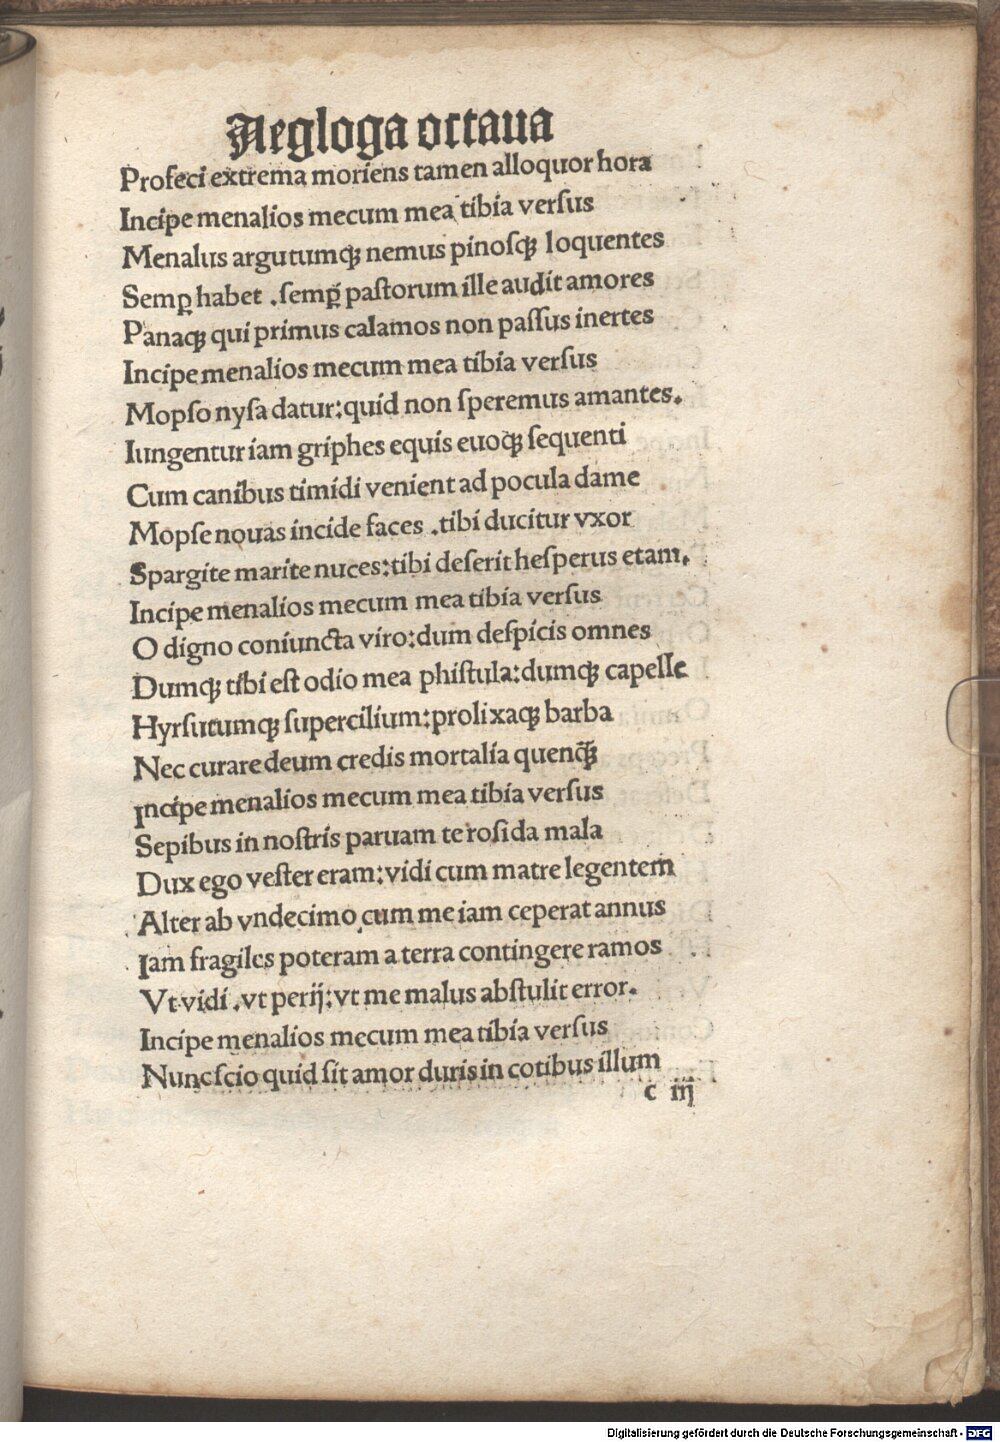 Aegloga octaua
Profeci extrema moriens tamen alloquor hora
Incipe menalios mecum mea tibia verſus
Menalus argutumqꝫ nemus pinoſqꝫ loquentes
Semꝑ habet .ſemꝑ paſtorum ille audit amores
Panaqꝫ qui primus calamos non paſſus inertes
Incipe menalios mecum mea tibia verſus
Mopſo nyſa datur:quid non ſperemus amantes.
Iungentur iam griphes equis euoqꝫ ſequenti
Cum canibus timidi venient ad pocula dame
Mopſe nouas incide faces .tibi ducitur vxor
Spargite marite nuces:tibi deſerit heſperus etam.
Incipe menalios mecum mea tibia verſus
O digno coniuncta viro:dum deſpicis omnes
Dumqꝫ tibi eſt odio mea phiſtula:dumqꝫ capelle
Hyrſutumqꝫ ſupercilium:prolixaqꝫ barba
Nec curare deum credis mortalia quenq̃ꝫ
Incipe menalios mecum mea tibia verſus
Sepibus in noſtris paruam te roſida mala
Dux ego veſter eram:vidi cum matre legentem
Alter ab vndecimo cum me iam ceperat annus
Iam fragiles poteram a terra contingere ramos
Vt vidi .vt perij:vt me malus abſtulit error.
Incipe menalios mecum mea tibia verſus
Nunc ſcio quid ſit amor duris in cotibus illum
c iij
Digitalisierung gefördert durch die Deutsche Forschungsgemeinschaft - DFG